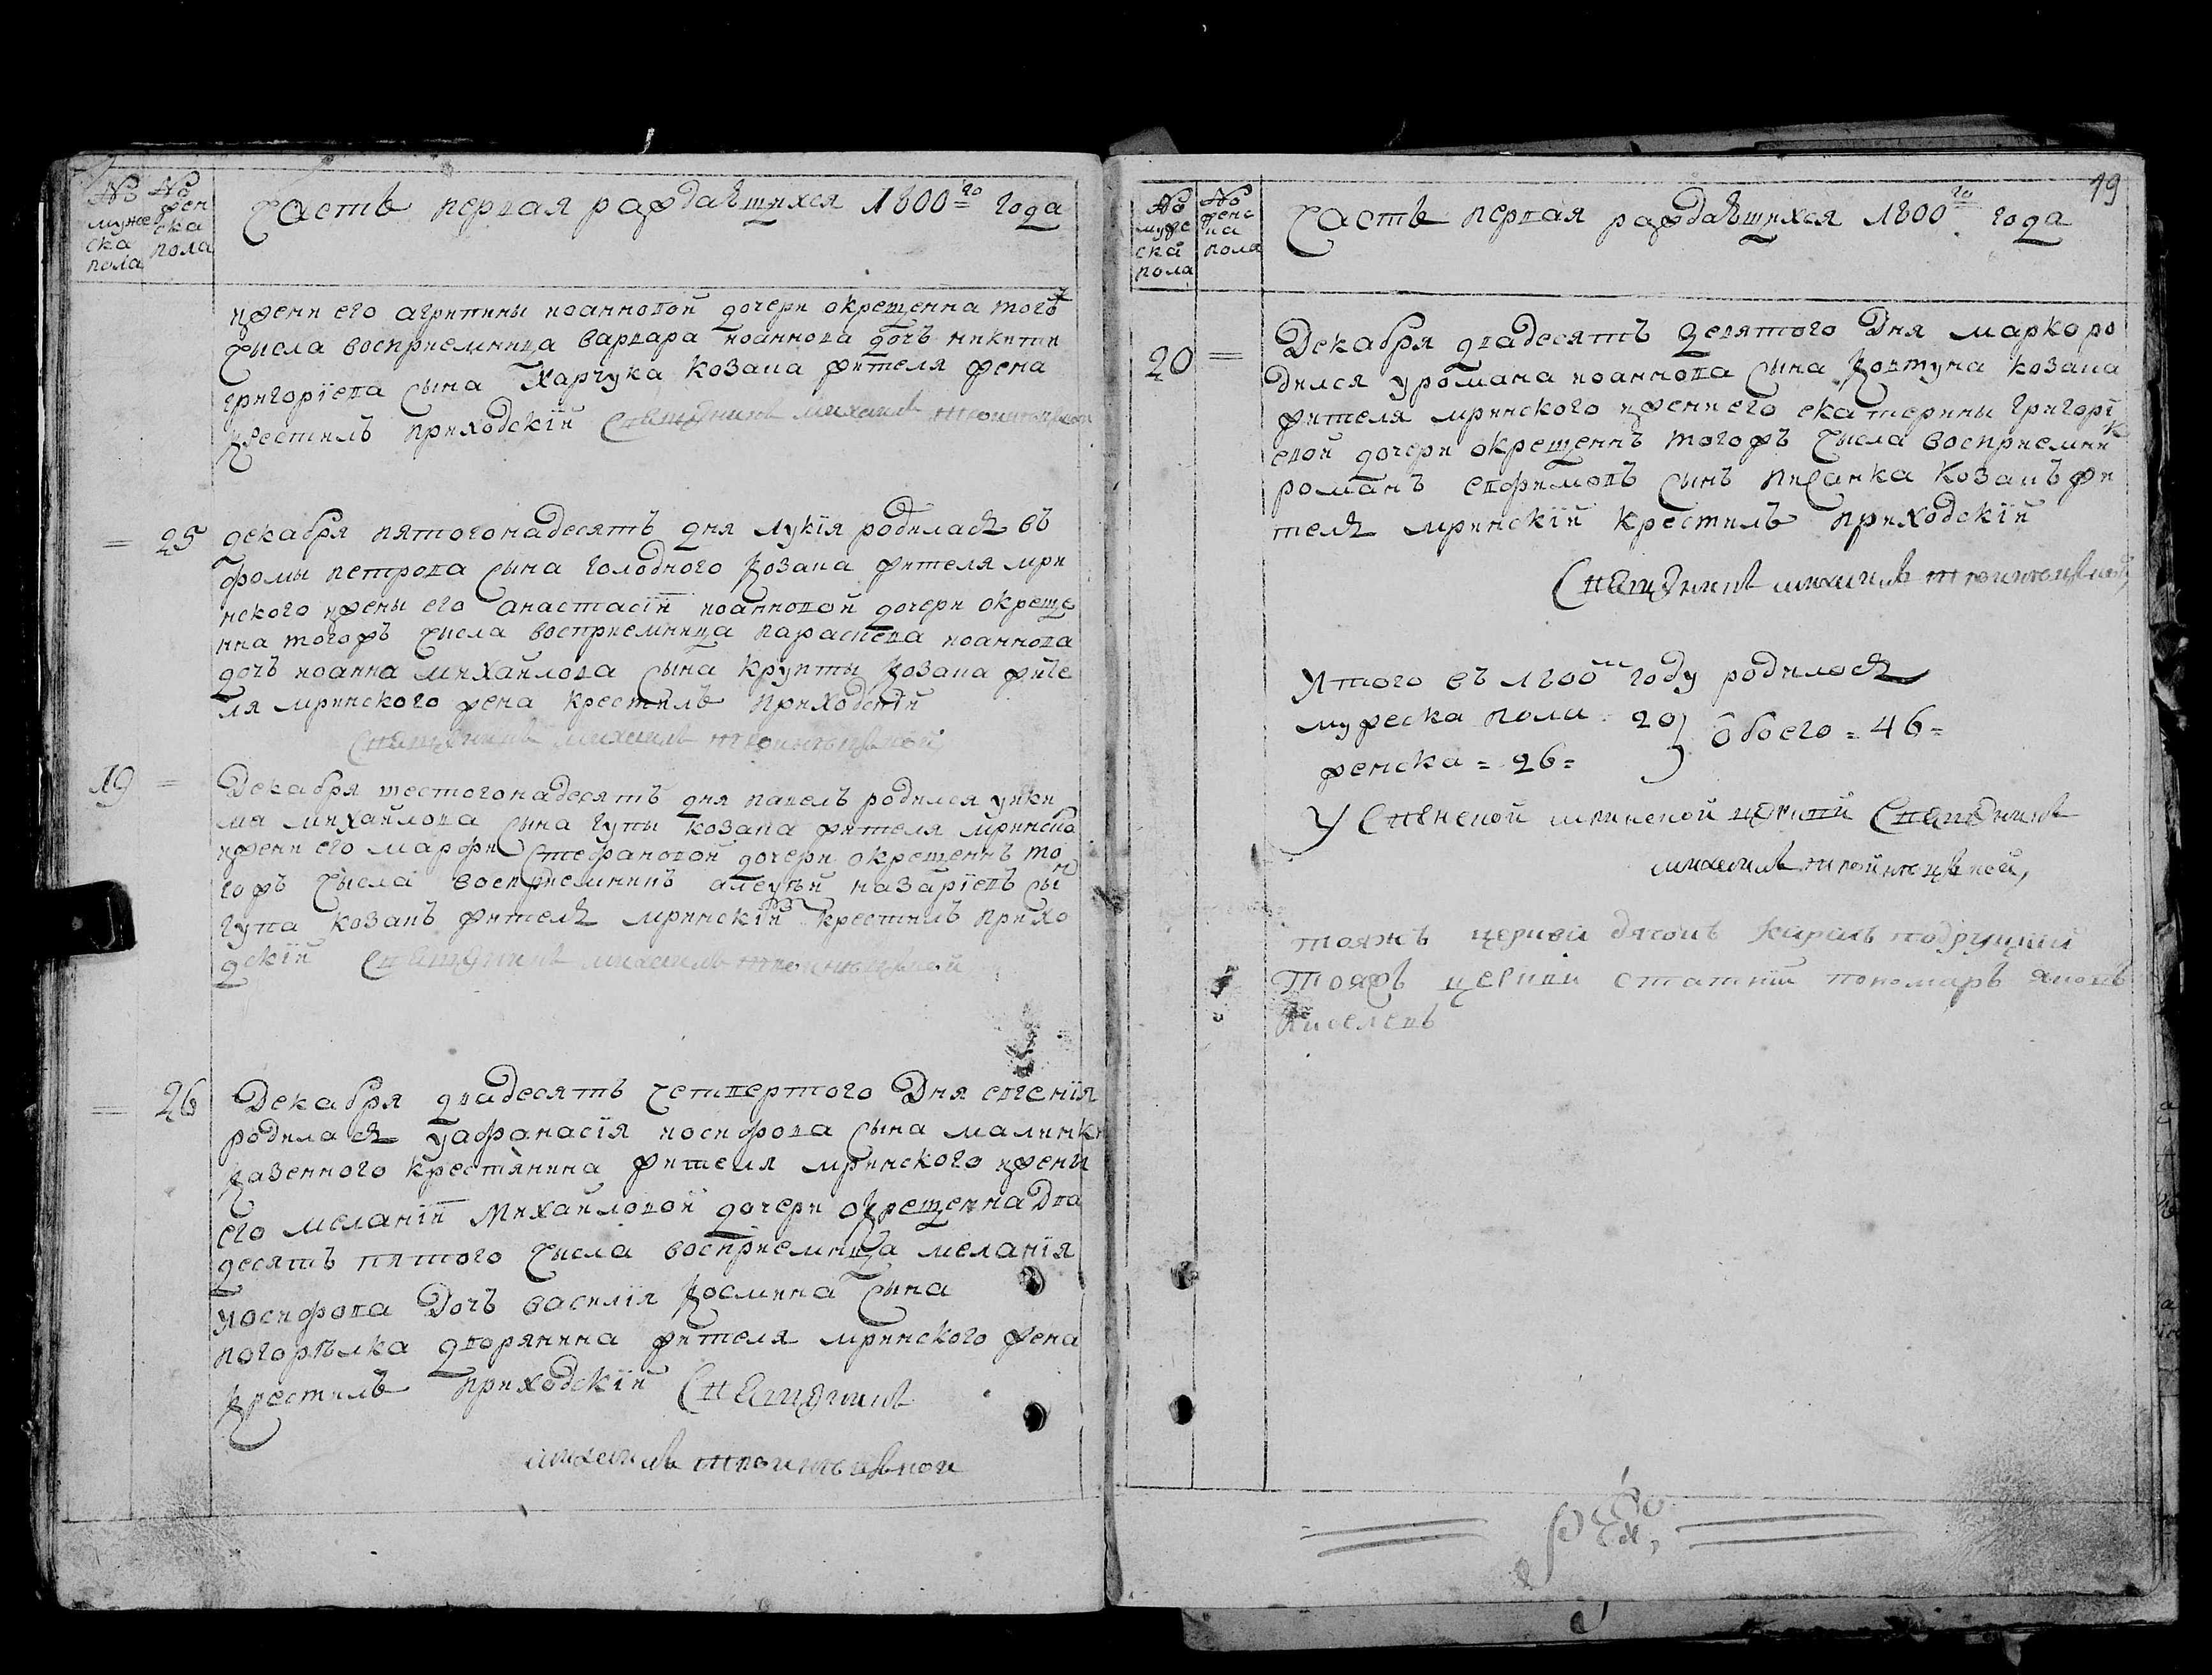 № мужеска пола
№ женска пола
Часть первая раждавшихся 1800го года
ижени его агрипины иоанновой дочери окрещенна тогож
числа восприемница варвара иоаннова дочъ никити
григорїева сына Харчука козака жителя жена
крестилъ приходскїй Священникъ михаилъ
= 25 декабря пятогонадесятъ дня лукїя родилася въ
фомы петрова сына голодного козака жителя мри
нского ижены его анастасїи иоанновой дочери окреще
нна тогожъ числа восприемница параскева иоаннова
дочъ иоанна михайлова сына крупты козака жите
ля мринского жена крестилъ приходскїй
Священникъ михаилъ
19 = Декабря шестогонадесятъ дня павелъ родился уяки
ма михайлова сына гупы козака жителя мринского
ижени его марфи Стефановой дочери окрещеннъ то
гожъ числа восприемникъ алеѯѣй назарїевъ сынъ
гупа козакъ житель мринскїй крестилъ прихо
дскїй Священникъ михаилъ
= 26 Декабря двадесятъ четвертого Дня евгенїя
родилася уафанасїя иосифова сына малинки
казенного крестянина жителя мринского ижени
его меланїи Михайловой дочери окрещенна два
десятъ пятого числа восприемница меланїя
иосифова Дочъ василїя космина сына
погорѣлка дворянина жителя мринского жена
крестилъ приходскїй Священникъ
михаилъ
19
№ мужеска пола
№ женска пола
Часть первая раждавшихся 1800го года
20 = Декабря двадесятъ девятого Дня марко ро
дился уромана иоаннова сына ковтуна козака
жителя мринского ижени его екатерины григорї
евой дочери окрещеннъ тогожъ числа восприемникъ
романъ евфимовъ сынъ писанка козакъ жи
тель мринскїй крестилъ приходскїй
Священникъ михаилъ
Итого въ 1800м году родилося
мужеска пола 20
женска = 26 =
обоего = 46 =
мринской церкви Священникъ
михаилъ
тояжъ церкви дячокъ
тояжъ церкви пономарь яковъ
киселевъ